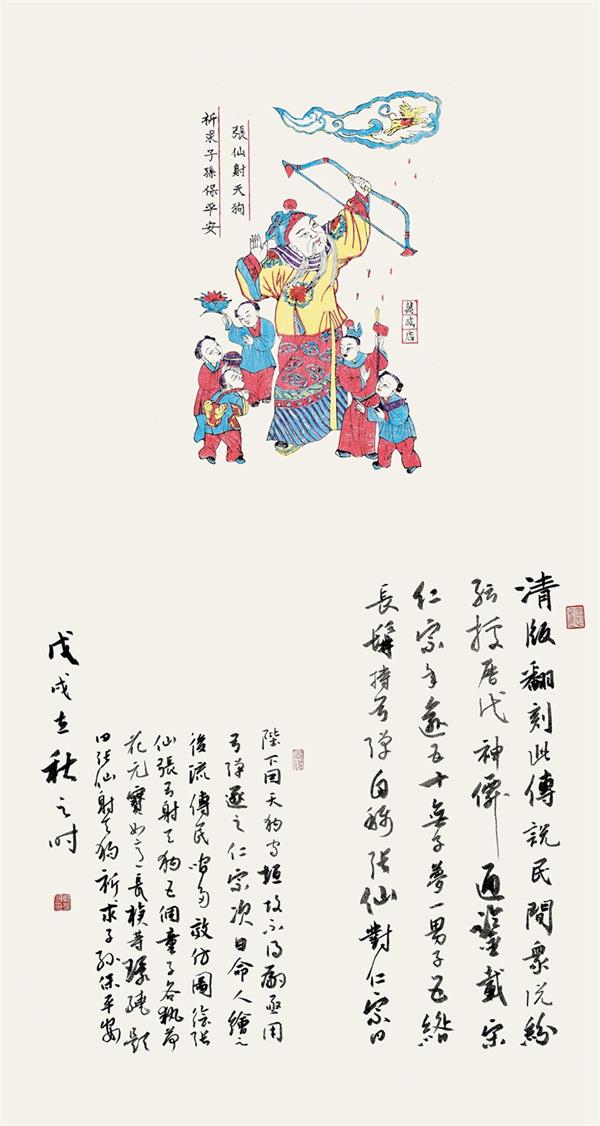 張仙射天狗
祈求子孫保平安
店
清版翻刻此傳説民間衆説紛
紜授歷代神僊通鑒載宋
仁宗年逾五十無子夢一男子五綹
長髯持弓彈自稱張仙對仁宗曰
陛下因天狗守垣故不得嗣亟用
弓彈逐之仁宗次日命人繪之
後流傳民間多效仿圖繪張
仙張弓射天狗五個童子各執荷
花元寶如意長等環繞題
曰張仙射天狗祈求子孫保平安
戊戌立秋之時